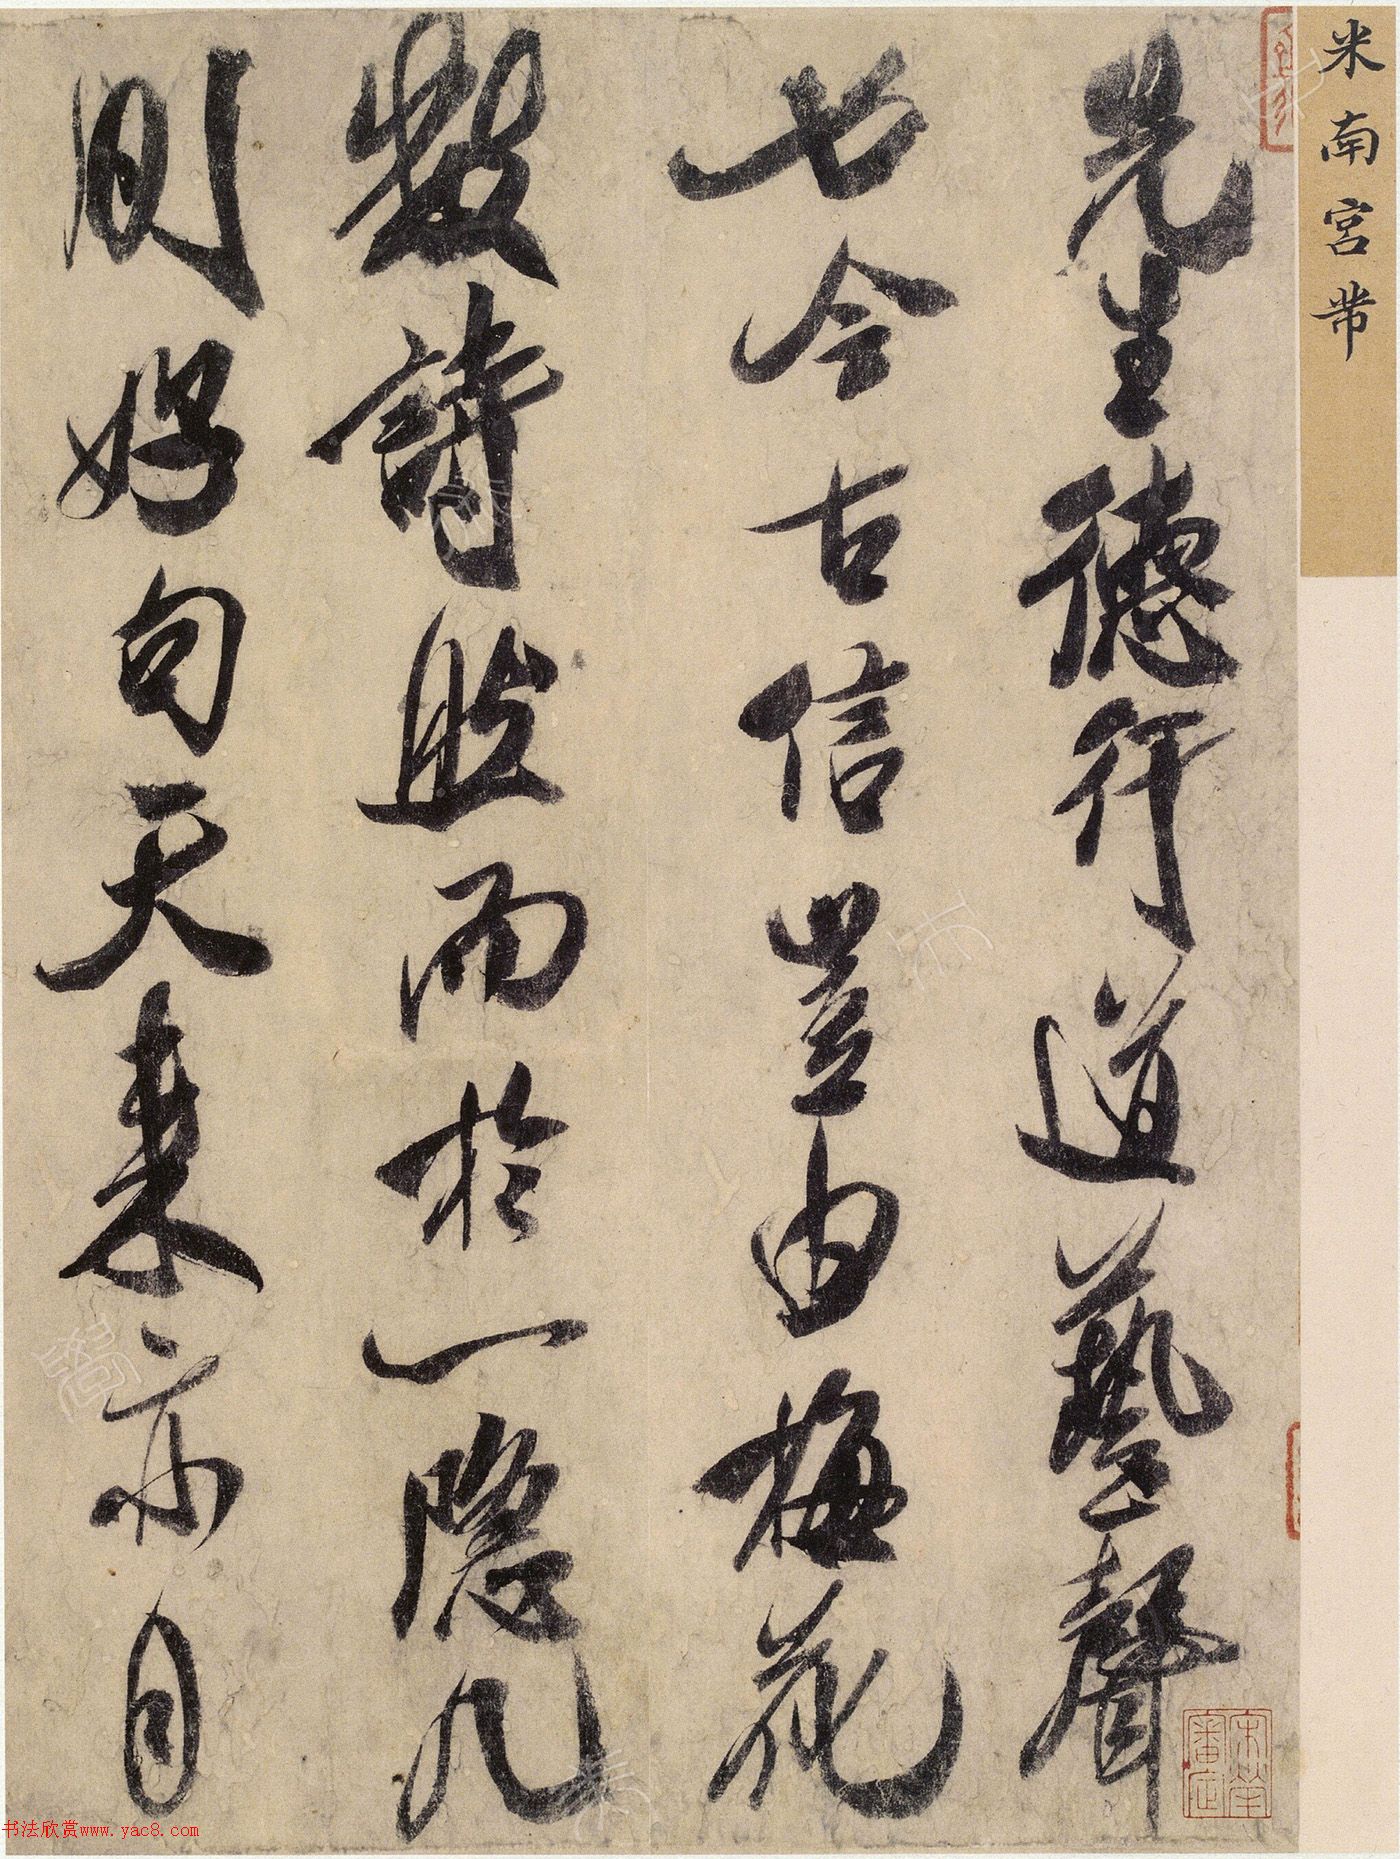 米南宮
先生德行道藝聲
今古信豈由梅花
數詩然而於一隱几
間好句天来亦自
宋犖審定
书法欣赏www.yac8.com